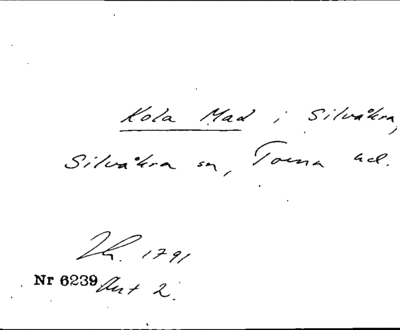 Kola Mad i Silvåkra,
Silvåkra sn, Torna hd.
1791
Nr 6239 Akt 2.